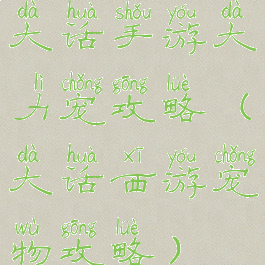 dà huà shǒu yóu dà
大话手游大
lì chǒng gōng lüè
力宠攻略（
dà huà xī yóu chǒng
大话西游宠
wù gōng lüè
物攻略）